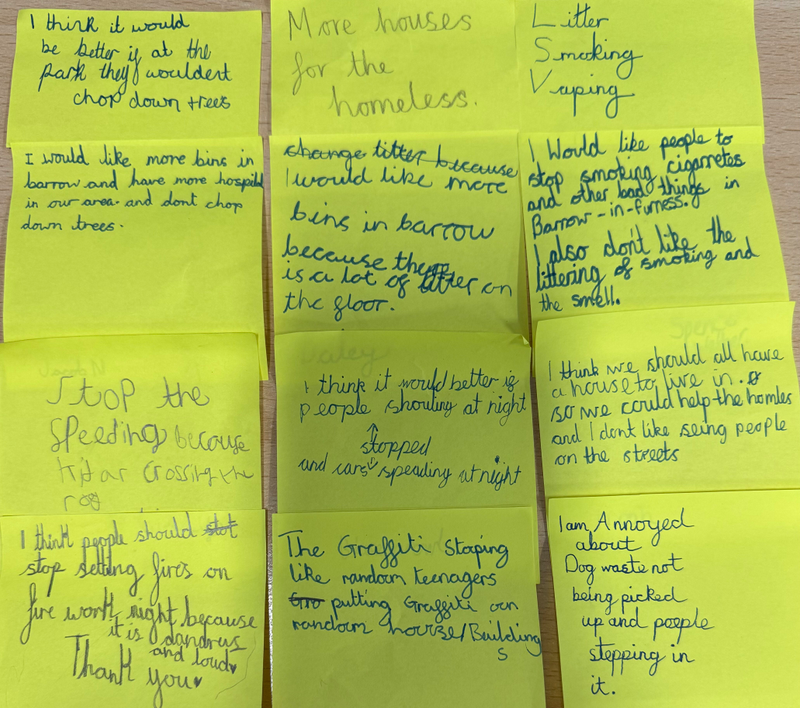 I think it would
be better if at the
park they wouldent
chop down trees
More houses
for the
homeless.
Litter
Smoking
Vaping
I would like more bins in
barrow and have more hospitl
in our area. and dont chop
down trees.
change litter because
I would like more
bins in barrow
because there
is a lot of litter on
the floor.
I Would like people to
stop smoking cigarretes
and other bad things in
Barrow-in-furness.
I also don't like the
littering of smoking and
the smell.
Stop the
Speeding because
crossing the
I think it would better if
people shouting at night
stopped
and cars speading at night
I think we should all have
a house to live in.
so we could help the homles
and I dont like seing people
on the streets
I think people should
stop setting fires on
fire work night because
it is dandrus
and loud♥
Thank you♥
The Graffiti Stoping
like random teenagers
Gra putting Graffiti on
random house/Building
s
I am Annoyed
about
Dog waste not
being picked
up and poeple
stepping in
it.